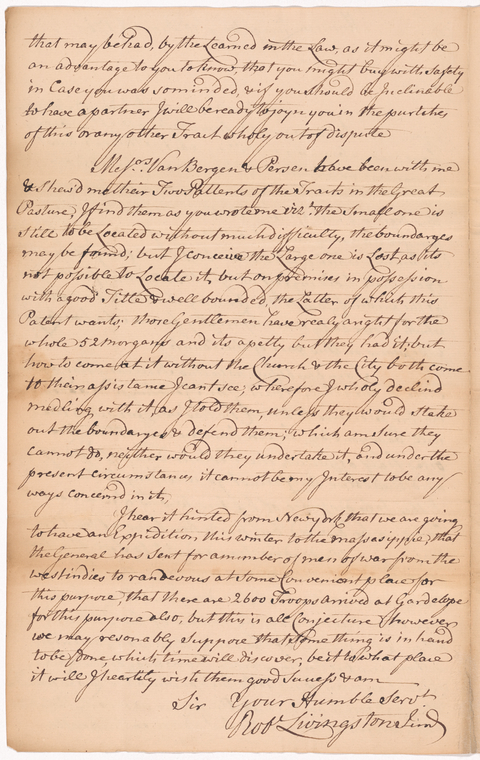 that may be had, by the Learned in the Law, as it might be
an advantage to you to know, that you might buy with Safety
in Case you was so minded, & if you should be Inclinable
to have a partner I will be ready to joyn you in the purtches
of this or any other Tract wholy out of dispute
Messrs. Van Bergen & Persen have been with me
& Shew'd me their Two Pattents of the Tracts in the Great
Pasture, I find them as you wrote me vizt. the Small one is
Still to be Located without much difficulty, the boundarges
may be found; but I conceive the Large one is Lost as its
not possible to Locate it, but on premises in possession
with a good Title & well bounded, the Latter of which this
Patent wants; those Gentlemen have realy a right for the
whole 52 morgans and its a petty but they had it; but
how to come at it without the Church & the City both come
to their assistame I cant see; wherefore I wholy declind
medling with it, as I told them, unless they would Stake
out the boundarges & defend them; which am sure they
cannot do, neither would they undertake it, and under the
present Circumstances it cannot be my Interest to be any
ways concernd in it,
I hear it hinted from New york, that we are going
to have an Expidition this winter to the massasippe, that
the General has Sent for a number of men of war from the
westindies to randevous at Some Convenient place for
this purpose, that there are 2600 Troops arrived at Gardelope
for this purpose also, but this is all Conjecture, however
we may resonably Suppose that Something is in hand
to be done, which time will discover, be it to what place
it will I heartily wish them good Success & am
Sir Your Humble Servt
Robt Livingston Junr